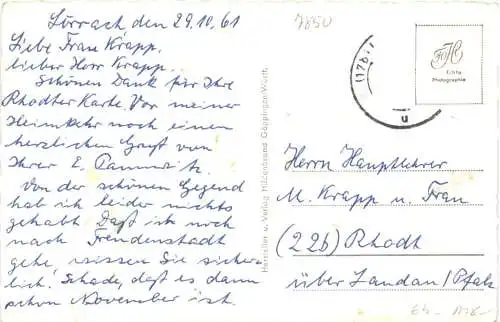 Lörrach den 29.10.61
Liebe Frau Krapp,
lieber Herr Krapp.
Schönen Dank für Ihre
Rhodter Karte. Vor meiner
Heimkehr noch einen
herzlichen Gruß von
Ihrer E.
Von der schönen Gegend
hab ich leider nichts
gehabt. Daß ich noch
nach Freudenstadt
gehe, wissen Sie sicher-
lich. Schade, daß es dann
schon November ist.
Hersteller u. Verlag Hildenbrand Göppingen/Württ.
7850
(17b)
u
FH
Echte
Photographie
Herrn Hauptlehrer
M. Krapp u. Frau
(22b) Rhodt
über Landau/Pfalz